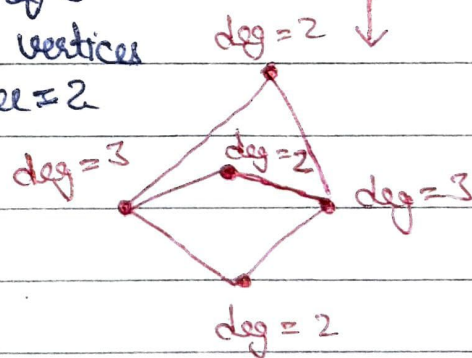 vertices
deg = 2
= 2
deg = 3
deg = 2
deg = 3
deg = 2